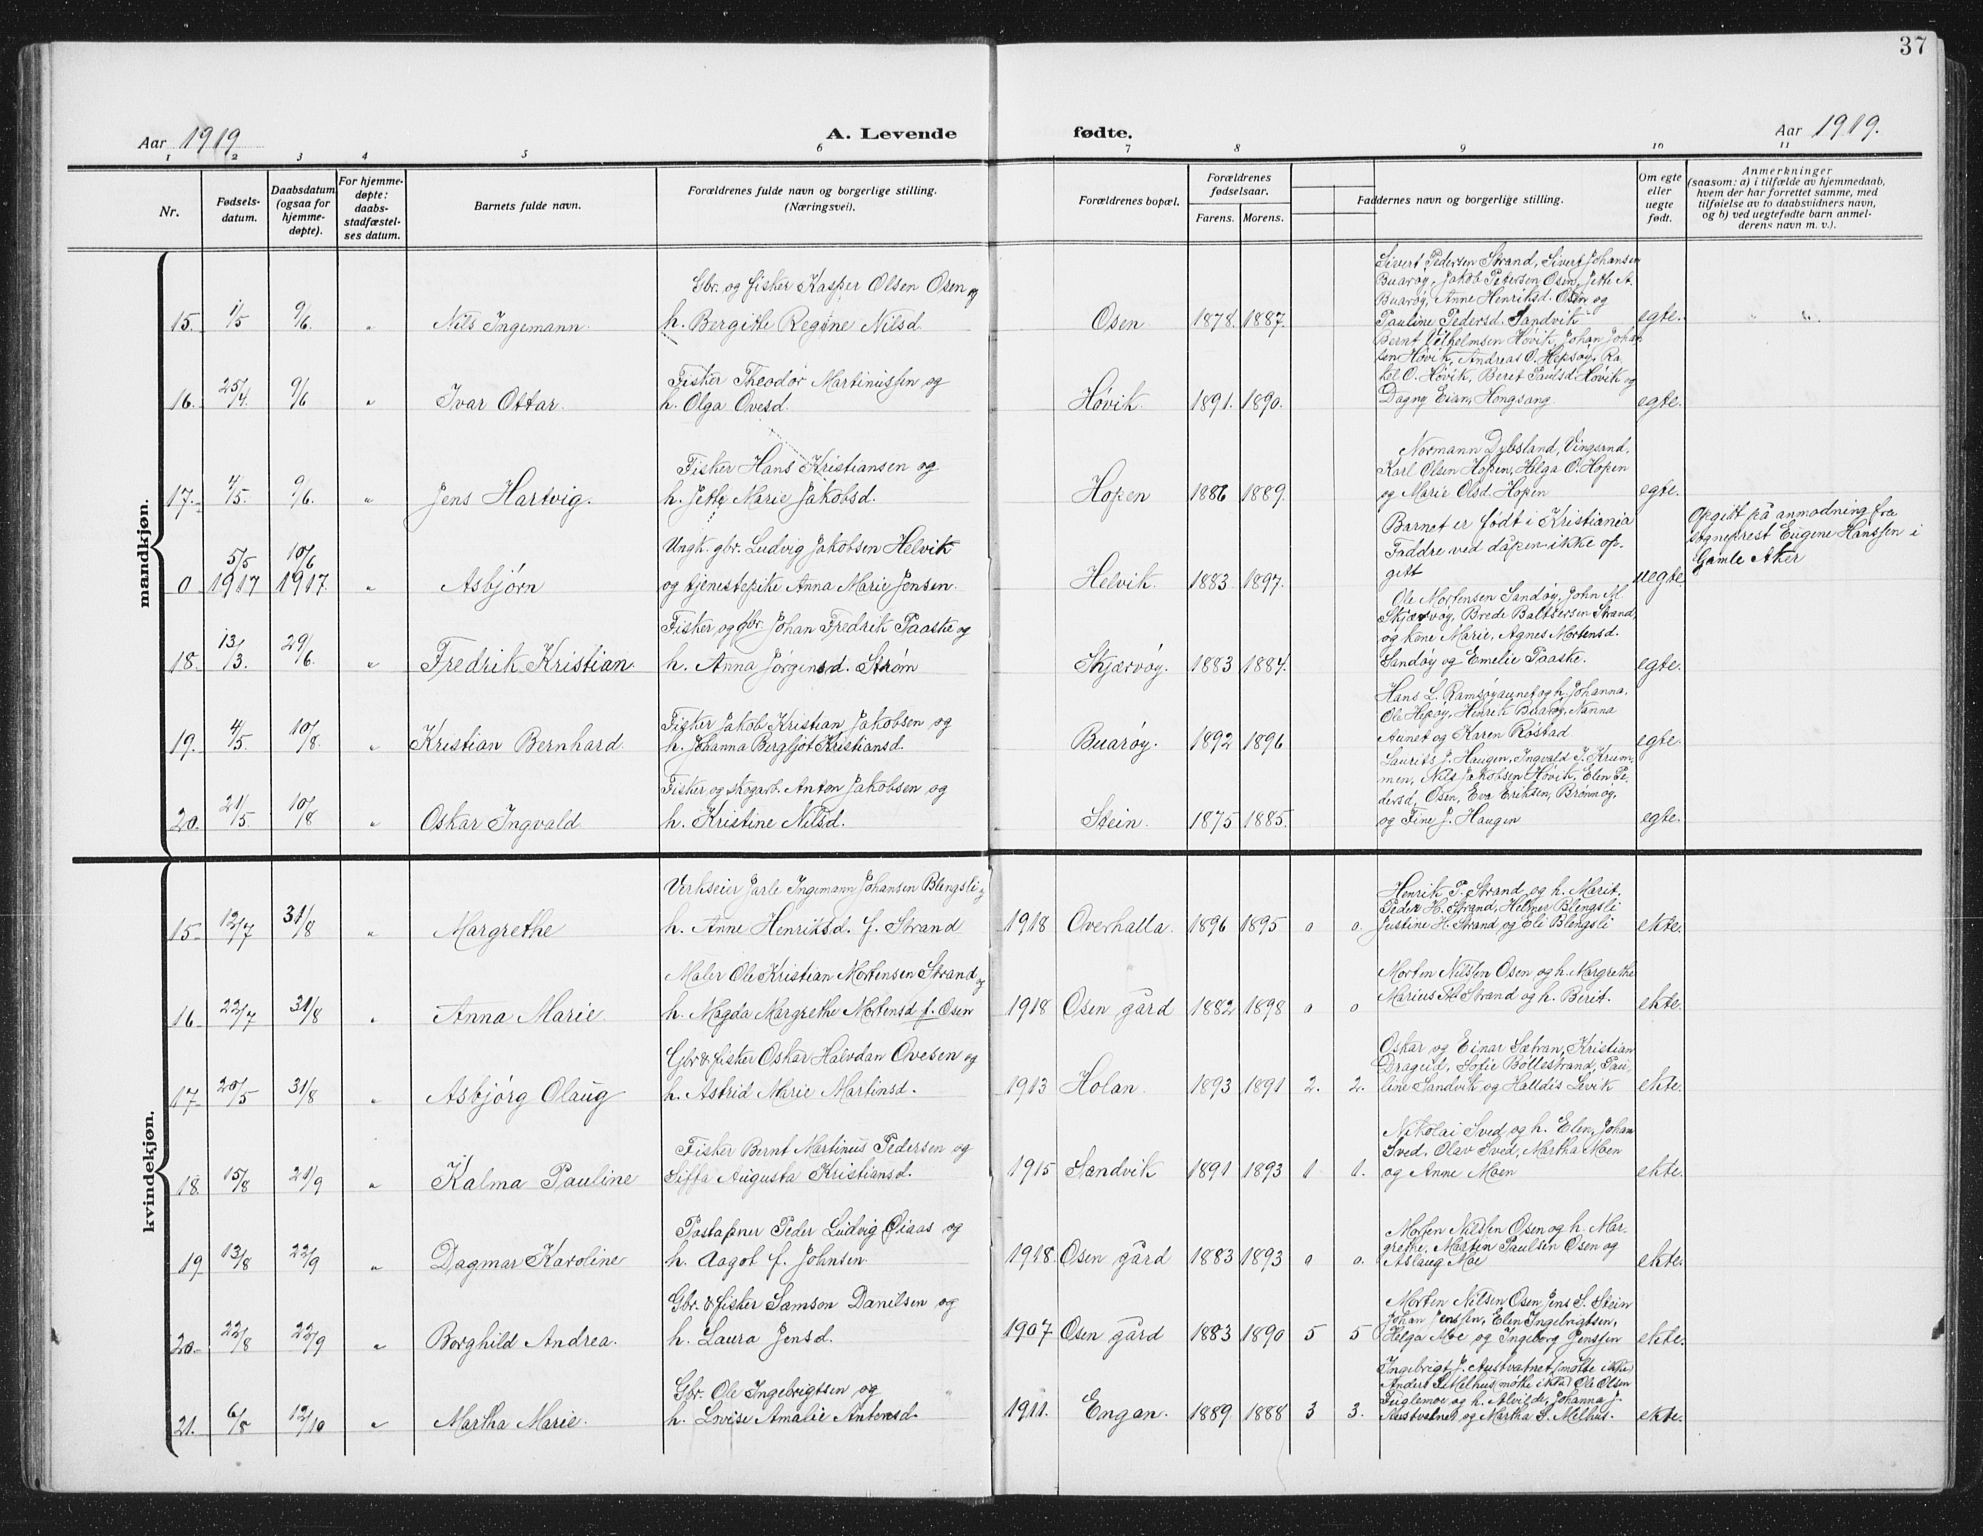 37
Aar 1919
A. Levende
fødte.
Aar 1919.
1 2 3 4 5 6 7 8 9 10 11
Nr.
Fødsels-
datum.
Daabsdatum
(ogsaa for
hjemme-
døpte).
For hjemme-
døpte:
daabs-
stadfæstel-
ses datum.
Barnets fulde navn.
Forældrenes fulde navn og borgerlige stilling.
(Næringsvei).
Forældrenes bopæl.
Forældrenes
fødselsaar.
Farens. Morens.
Faddernes navn og borgerlige stilling.
Om egte
eller
uegte
født.
Anmerkninger
(saasom: a) i tilfælde av hjemmedaab,
hvem der har forrettet samme, med
tilføielse av to daabsvidners navn,
og b) ved uegtefødte barn anmel-
derens navn m. v.).
mandkjøn.
15. 1/5 9/6 " Nils Ingemann.
Gbr. og fisker Kasper Olsen Osen og
h. Bergitte Regine Nilsd.
Osen 1878. 1887.
Sivert Pedersen Strand, Sivert Johansen
Buarøy, Jakob Petersen Osen, Jette A.
Buarøy, Anne Henriksd. Osen og
Pauline Pedersd. Sandvik
egte. " "
16. 25/4. 9/6 " Ivar Ottar.
Fisker Theodor Martinussen og
h. Olga Ovesd.
Høvik. 1891. 1890.
Bernt Vilhelmsen Høvik, Johan Johan
sen Høvik, Andreas O. Hepsøy, Ra-
kel O. Høvik, Berit Paulsd Høvik og
Dagny Eian, Hongsang.
egte.
17. 4/5. 9/6. " Jens Hartvig.
Fisker Hans Kristiansen og
h. Jette Marie Jakobsd.
Hopen 1886 1889.
Normann Dybsland, Vingsand,
Karl Olsen Hopen, Helga O. Hopen
og Marie Olsd. Hopen
egte.
0 5/5 1917 10/6 1917. " Asbjørn
Ungk. gbr. Ludvig Jakobsen Helvik
og tjenestepike Anna Marie Jensen.
Helvik. 1883. 1897.
Barnet er født i Kristiania
Faddre ved dåpen ikke op-
gitt
uegte
Opgitt på anmodning fra
sogneprest Eugene Hanssen i
Gamle Aker
18. 13/3. 29/6 " Fredrik Kristian.
Fisker og gbr. Johan Fredrik Paaske og
h. Anna Jørgensd. Strøm
Skjærvøy. 1883 1884.
Ole Mortensen Sandøy, John M
Skjærvøy, Brede Baltsersen Strand,
og kone Marie, Agnes Mortensd.
Sandøy og Emelie Paaske.
egte.
19. 4/5. 10/8. " Kristian Bernhard.
Fisker Jakob Kristian Jakobsen og
h. Johanna Bergljot Kristiansd.
Buarøy. 1892 1896
Hans L. Ramsøyaunet og h. Johanna,
Ole Hepsøy, Henrik Buarøy, Nanna
Aunet og Karen Røstad
egte.
20. 21/5. 10/8 " Oskar Ingvald
Fisker og skogarb. Anton Jakobsen og
h. Kristine Nilsd.
Stein. 1875 1885.
Laurits J. Haugen, Ingvald J. Krum-
men, Nils Jakobsen Høvik, Elen Pe-
dersd, Osen, Eva Eriksen, Brønnøy,
og Fine J. Haugen
egte.
kvindekjøn.
15. 12/7 31/8 " Margrethe
Verkseier Jarle Ingemann Johansen Blengsli og
h. Anne Henriksd. f. Strand
1918 Overhalla. 1896 1895 0 0.
Henrik P. Strand og h. Marit,
Peder H. Strand, Helmer Blengsli
Justine H. Strand, og Eli Blengsli
ekte.
16 22/7 31/8 " Anna Marie.
Maler Ole Kristian Mortensen Strand og
h. Magda Margrethe Mortensd f. Osen
1918 Osen gård 1882 1898 0 0
Morten Nilsen Osen og h. Margrethe
Marius M. Strand og h. Berit.
ekte.
17. 20/5 31/8 " Asbjørg Olaug
Gbr & fisker Oskar Halvdan Ovesen og
h. Astrid Marie Martinsd.
1913 Holan. 1893 1891 2. 2.
Oskar og Einar Sætran, Kristian
Drageid, Sofie Bøllestrand, Pau-
line Sandvik og Halldis Levik
ekte.
18. 15/8 21/9 " Kalma Pauline
Fisker Bernt Martinus Pedersen og
Siffa Augusta Kristiansd.
1915 Sandvik 1891 1893 1 1.
Nikolai Sved og h. Elen, Johan
Sved, Olav Sved, Martha Moen
og Anne Moen
ekte.
19 13/8 22/9 " Dagmar Karoline
Postapner Peder Ludvig Qiaas og
h. Aagot f. Johnsen.
1918. Osen gård 1883 1893 0 0.
Morten Nilsen Osen og h. Mar-
grethe, Martin Paulsen Osen og
Aslaug Moe
ekte.
20. 22/8 22/9 " Borghild Andrea.
Gbr. & fisker Samson Danilsen og
h. Laura Jensd.
1907 Osen gård 1883 1890 5 5
Morten Nilsen Osen, Jens S. Stein
Johan Jenssen, Elen Ingebrigtsen,
Helga Moe og Ingeborg Jenssen
ekte.
21. 6/8 12/10 " Martha Marie.
Gbr. Ole Ingebrigtsen og
h. Lovise Amalie Antonsd.
1911. Engan. 1889 1888 3 3.
Ingebrigt J. Austvatnet (møtte ikke)
Anders S. Melhus (møtte ikke) Ole Olsen
Fuglemoe og h. Alvilde, Johanna J.
Austvatnet og Martha S. Melhus.
ekte.